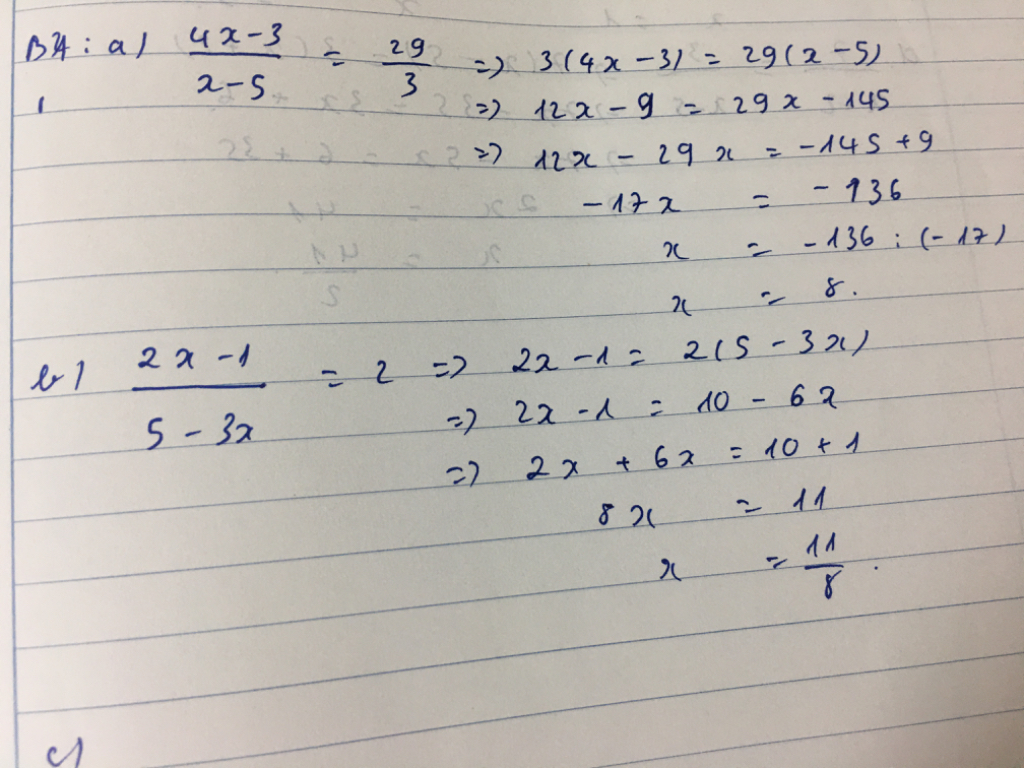 B4 : a) (4x-3)/(x-5) = 29/3 => 3(4x-3) = 29(x-5)
=> 12x - 9 = 29x - 145
=> 12x - 29x = -145 + 9
-17x = -136
x = -136 : (-17)
x = 8.
b) (2x-1)/(5-3x) = 2 => 2x - 1 = 2(5 - 3x)
=> 2x - 1 = 10 - 6x
=> 2x + 6x = 10 + 1
8x = 11
x = 11/8 .
c)